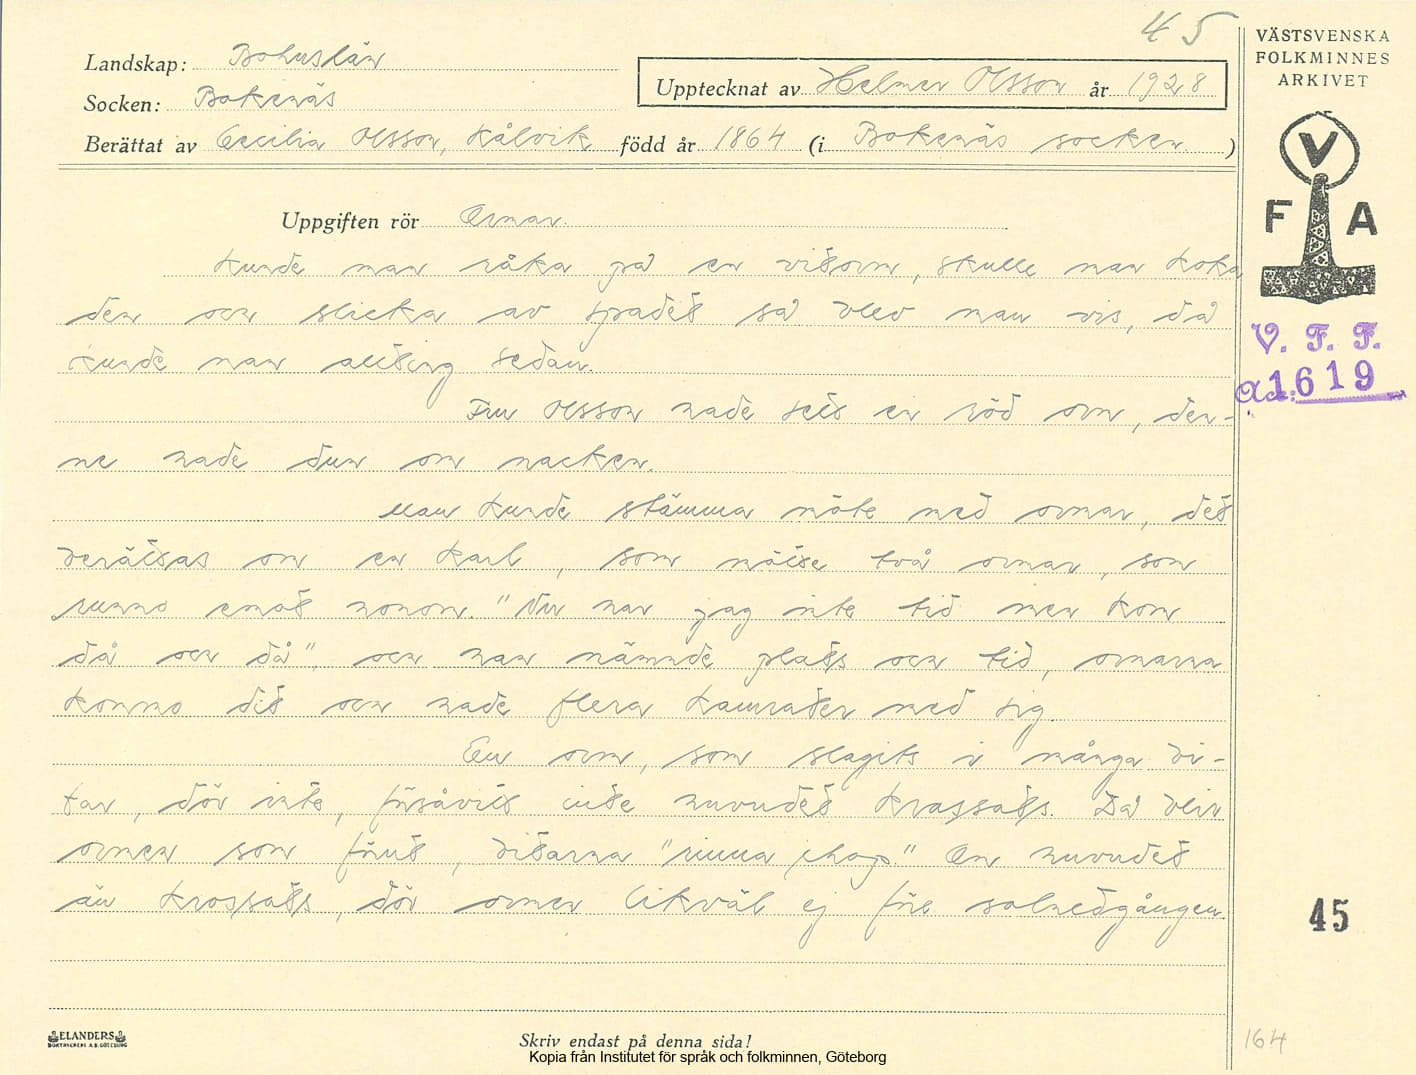 45
VÄSTSVENSKA
FOLKMINNES
ARKIVET
Landskap: Bohuslän
Upptecknat av Helmer Olsson år 1928
Socken: Bokenäs
Berättat av Cecilia Olsson, Kålvik född år 1864 (i Bokenäs socken )
V
F A
Uppgiften rör Ormar.
Kunde man råka på en vitorm, skulle man koka
den och slicka av spadet så blev man vis, då
kunde man allting sedan.
V. F. F.
Ad: 1619
Fru Olsson hade sett en röd orm, den-
ne hade dun om nacken.
Man kunde stämma möte med ormar, det
berättas om en karl, som mötte två ormar, som
runno emot honom. "Nu har jag inte tid men kom
då och då", och han nämnde plats och tid, ormarna
kommo dit och hade flera kamrater med sig.
En orm, som slagits i många bi-
tar, dör inte, försåvitt inte huvudet krossats. Då blir
ormen som förut, bitarna "rinna ihop." Om huvudet
än krossats, dör ormen likväl ej före solnedgången.
45
ELANDERS
BOKTRYCKERI A.B. GÖTEBORG
Skriv endast på denna sida!
164
Kopia från Institutet för språk och folkminnen, Göteborg